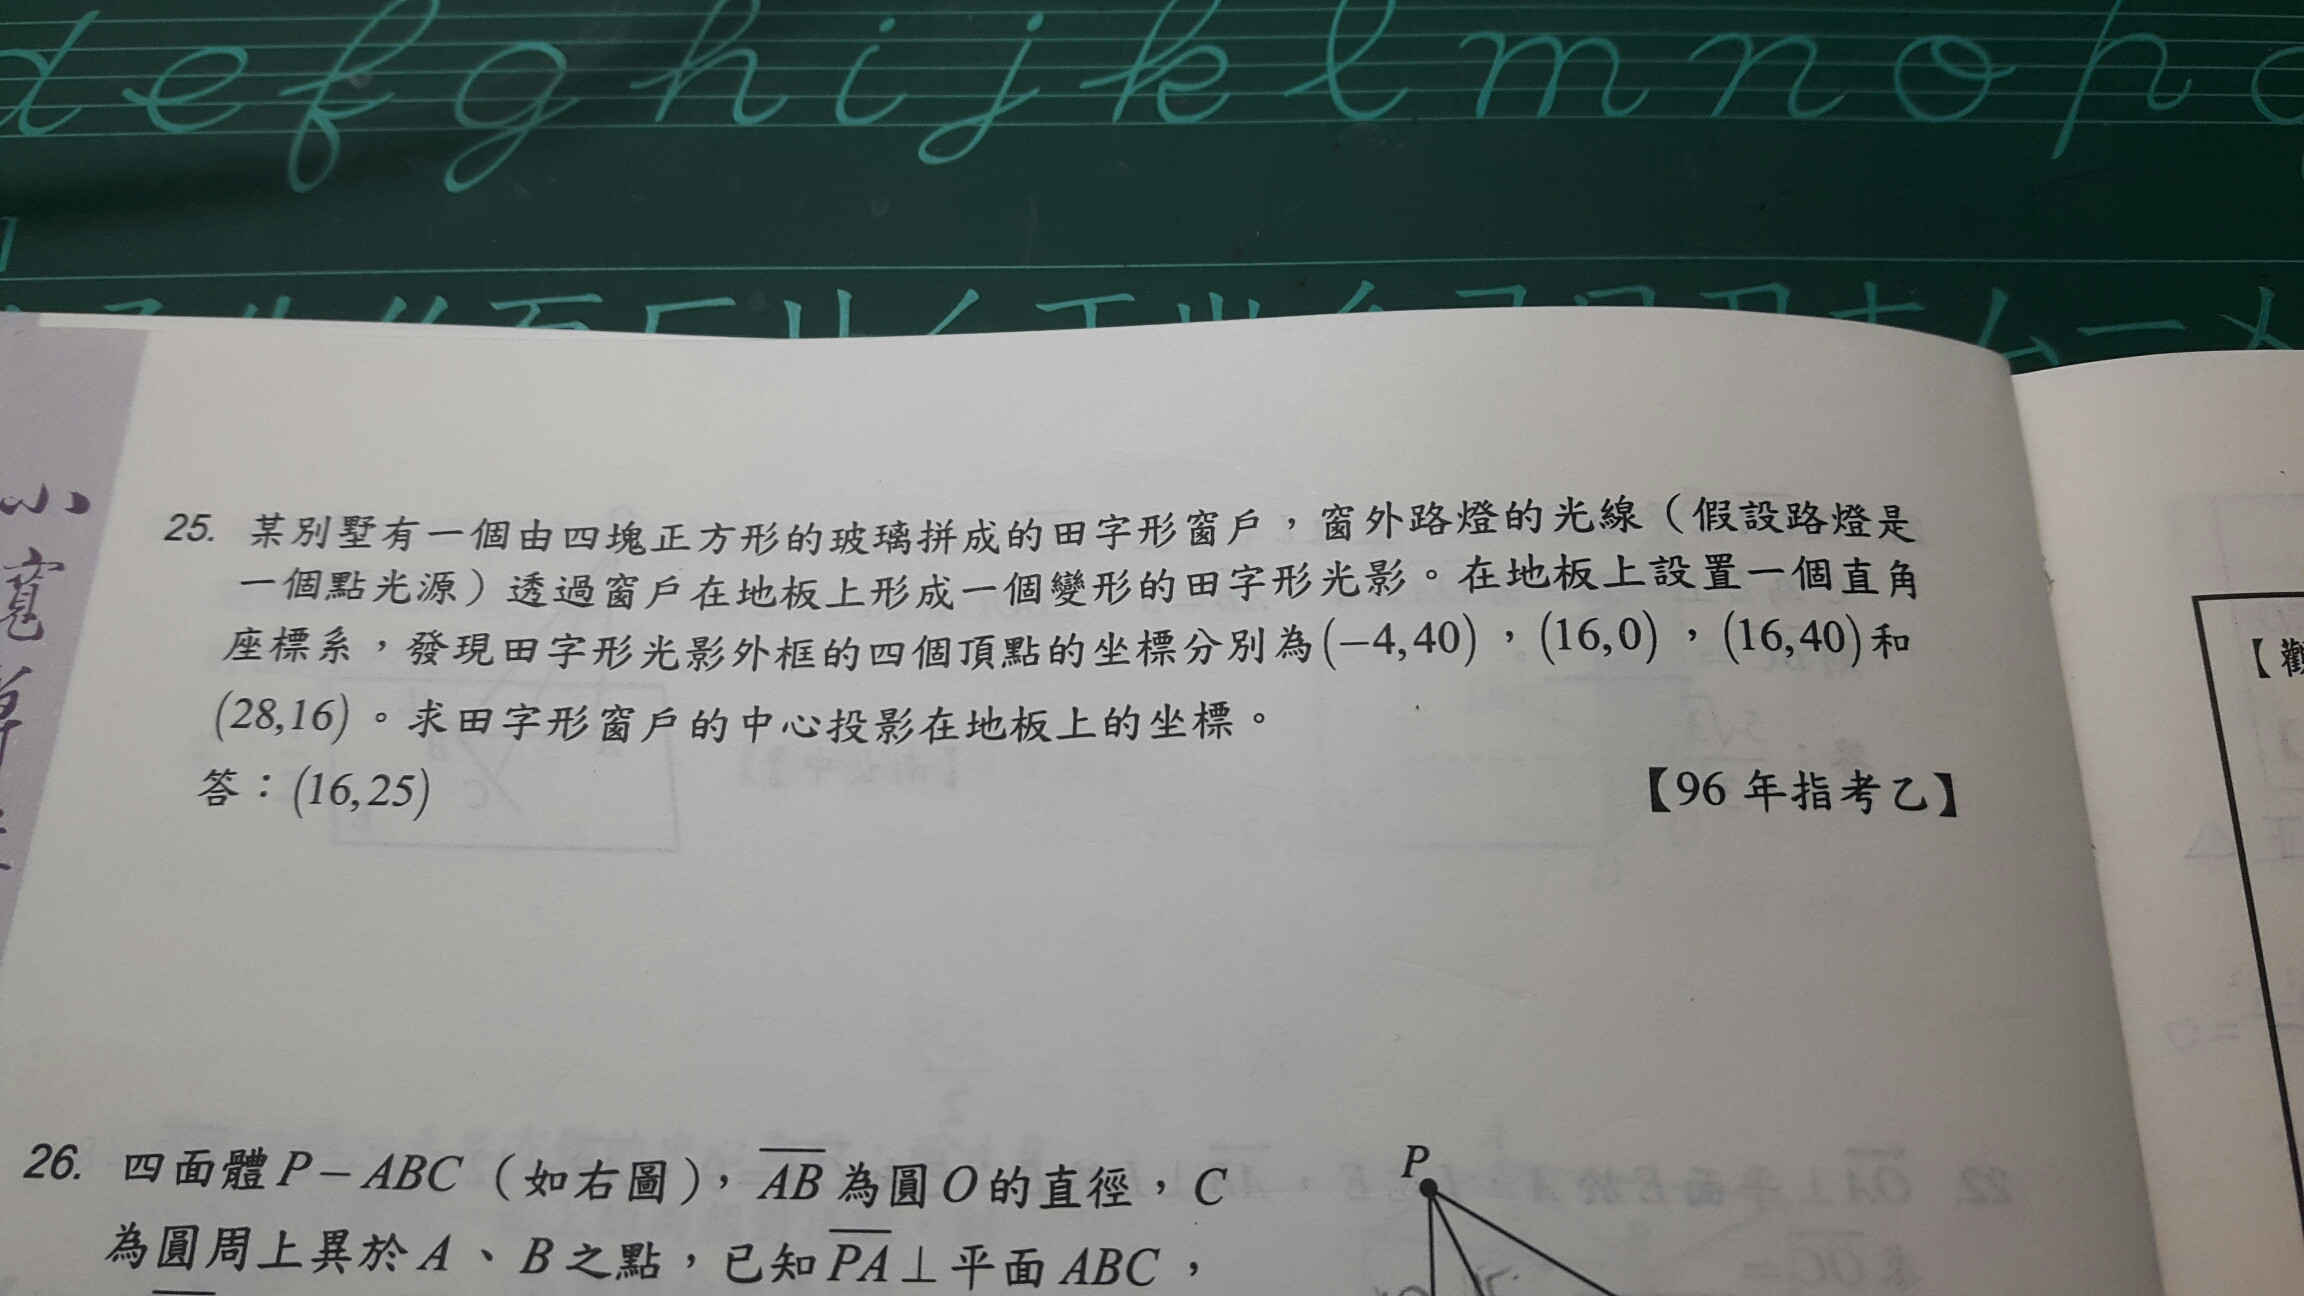 d e f g h i j k l m n o p
小
寬
25. 某別墅有一個由四塊正方形的玻璃拼成的田字形窗戶，窗外路燈的光線（假設路燈是
一個點光源）透過窗戶在地板上形成一個變形的田字形光影。在地板上設置一個直角
座標系，發現田字形光影外框的四個頂點的坐標分別為(−4,40)，(16,0)，(16,40)和
(28,16)。求田字形窗戶的中心投影在地板上的坐標。
答：(16,25)
【96 年指考乙】
26. 四面體P−ABC（如右圖），AB為圓O的直徑，C
為圓周上異於A、B之點，已知PA⊥平面ABC，
P
【觀